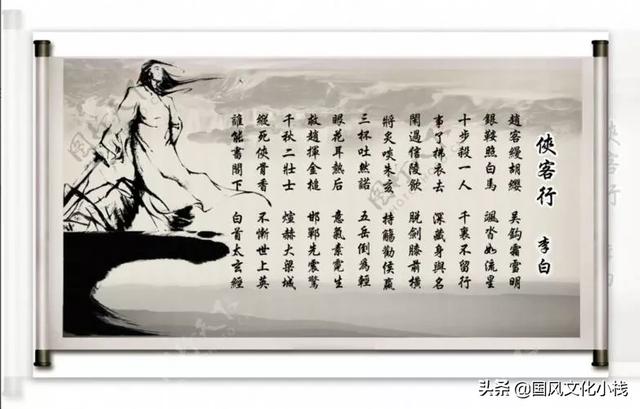 俠客行 李白
趙客縵胡纓 吳鈎霜雪明
銀鞍照白馬 颯沓如流星
十步殺一人 千裏不留行
事了拂衣去 深藏身與名
閑過信陵飲 脫劍膝前橫
將炙啖朱亥 持觴勸侯嬴
三杯吐然諾 五岳倒為輕
眼花耳熱后 意氣素霓生
救趙揮金槌 邯鄲先震驚
千秋二壯士 煊赫大梁城
縱死俠骨香 不慚世上英
誰能書閣下 白首太玄經
头条 @国风文化小栈